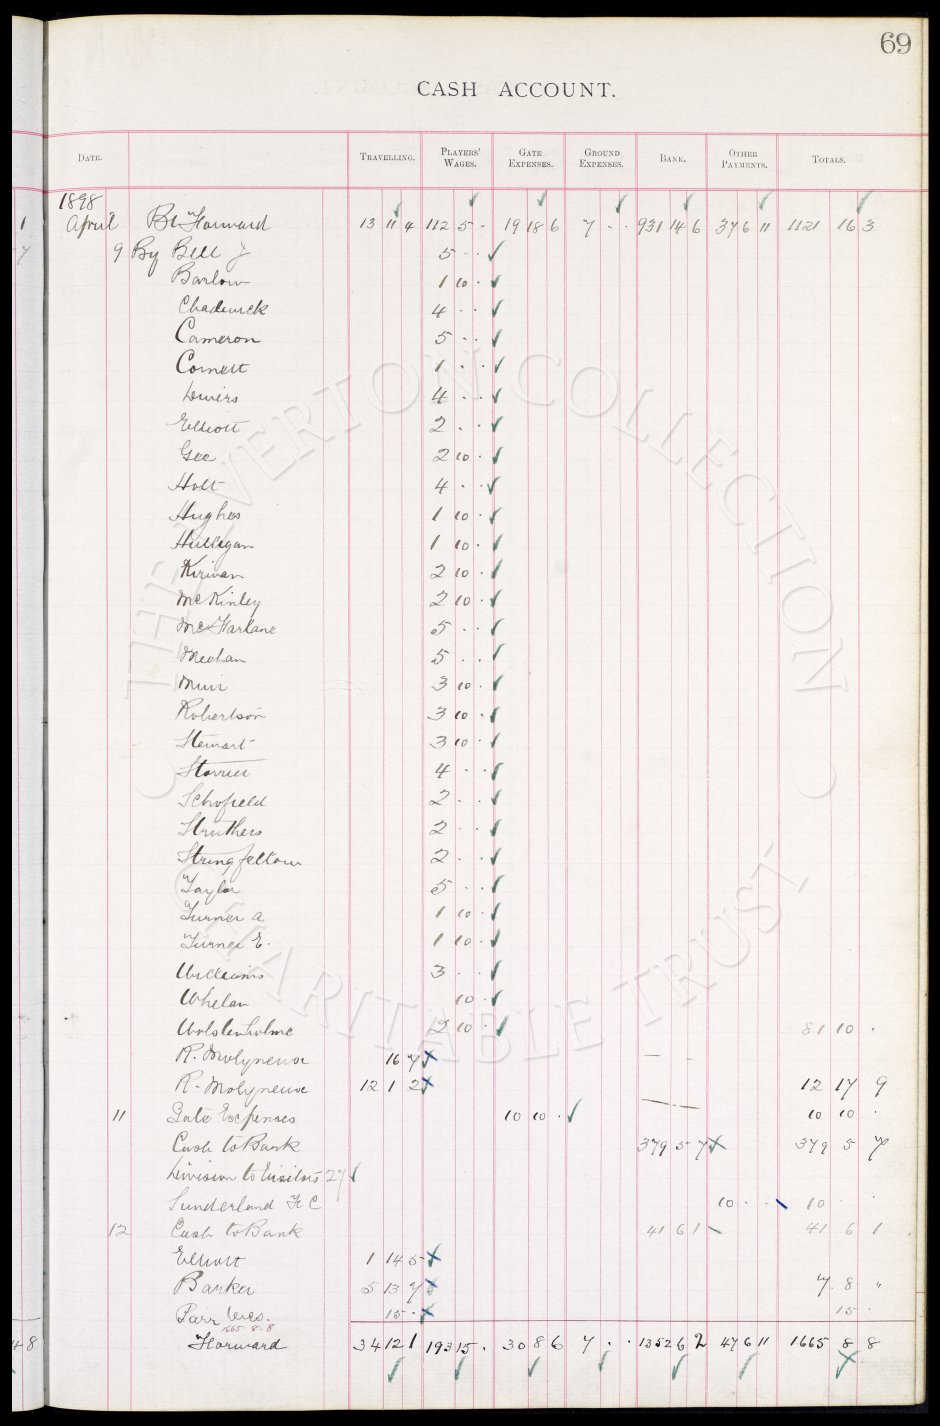 69
CASH ACCOUNT.
DATE. TRAVELLING. PLAYERS' WAGES. GATE EXPENSES. GROUND EXPENSES. BANK. OTHER PAYMENTS. TOTALS.
1898
April Bt Forward 13 11 4 112 5 - 19 18 6 7 - - 931 14 6 37 6 11 1121 16 3
9 By Bell J 5 - -
Barlow 1 10 -
Chadwick 4 - -
Cameron 5 - -
Comett 1 - -
Divers 4 - -
Elliott 2 - -
Gee 2 10 -
Holt 4 - -
Hughes 1 10 -
Hulligan 1 10 -
Kirwan 2 10 -
McKinley 2 10 -
McFarlane 5 - -
Meehan 5 - -
Muir 3 10 -
Robertson 3 10 -
Stewart 3 10 -
Storrier 4 - -
Schofield 2 - -
Struthers 2 - -
Stringfellow 2 - -
Taylor 5 - -
Turner A 1 10 -
Turner E. 1 10 -
Williams 3 - -
Whelan 10 -
Wolstenholme 2 10 - 81 10 -
R. Molyneux 16 7
R. Molyneux 12 1 2 12 17 9
11 Gate Expenses 10 10 - 10 10 -
Cash to Bank 379 5 7 379 5 7
Division to Visitors 27
Sunderland F C 10 - - 10 - -
12 Cash to Bank 41 6 1 41 6 1
Elliott 1 14 5
Barker 5 13 7 7 8 "
Parr Wes. 15 - 15 -
1665-8-8
Forward 34 12 1 193 15 - 30 8 6 7 - - 1352 6 2 47 6 11 1665 8 8
THE EVERTON COLLECTION
CHARITABLE TRUST